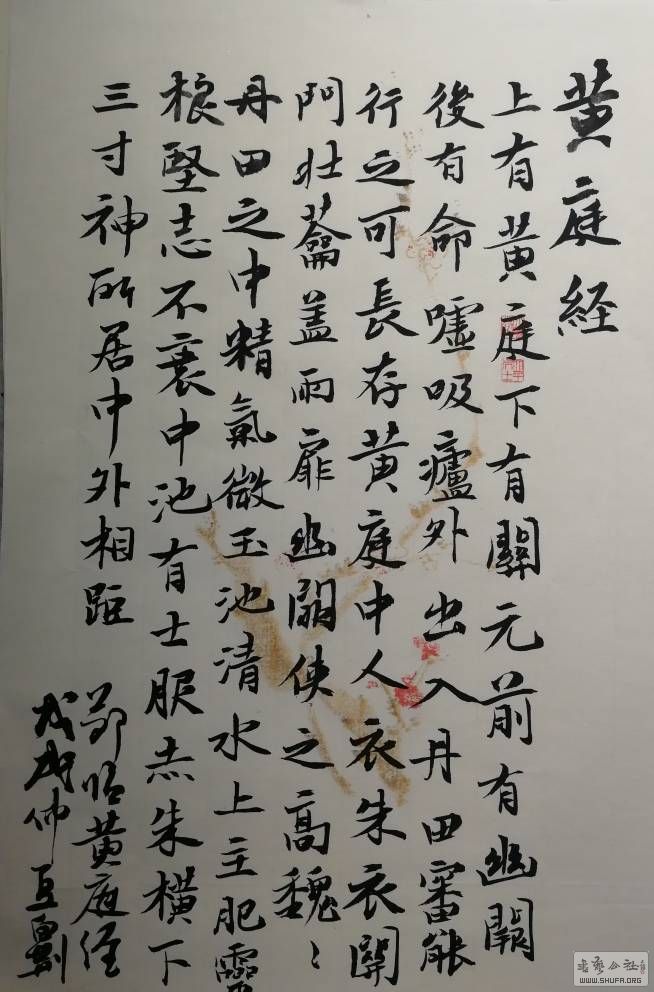 黄庭経
上有黄庭下有關元前有幽闕
後有命噓吸廬外出入丹田審能
行之可長存黄庭中人衣朱衣關
門壯蘥盖兩扉幽闕俠之高魏〻
丹田之中精氣微玉池清水上主肥靈
根堅志不衰中池有士服赤朱横下
三寸神所居中外相距
節临黄庭经
戊戌仲夏
书艺公社
WWW.SHUFA.ORG